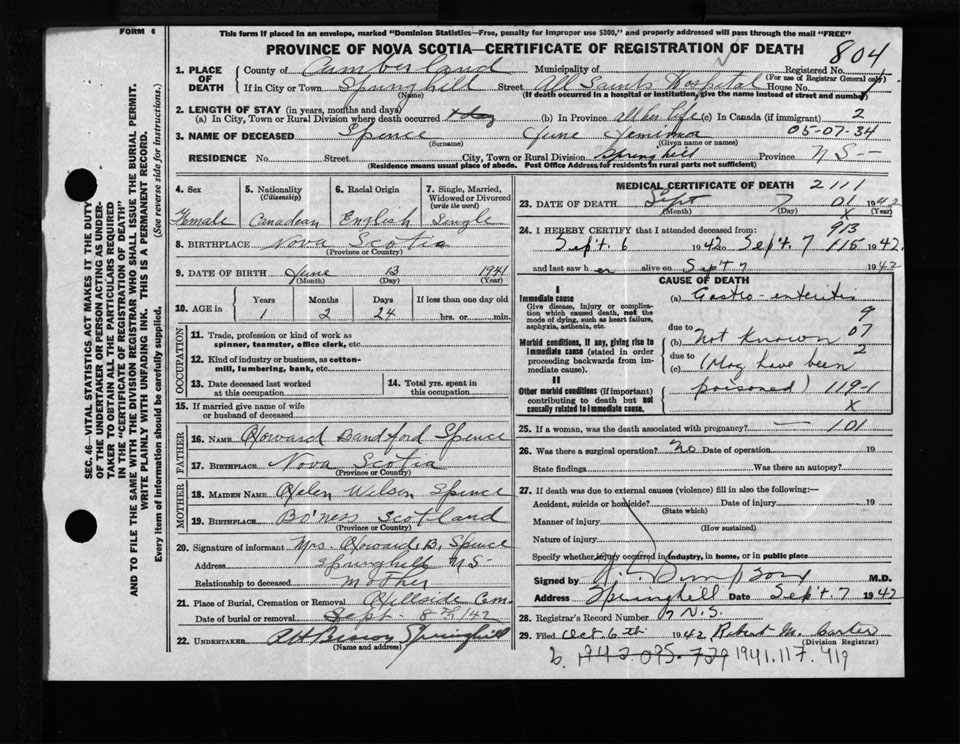 FORM 6
This form if placed in an envelope, marked "Dominion Statistics—Free, penalty for improper use $300," and properly addressed will pass through the mail "FREE"
PROVINCE OF NOVA SCOTIA—CERTIFICATE OF REGISTRATION OF DEATH
804
1. PLACE OF DEATH County of Cumberland Municipality of Registered No.
(For use of Registrar General only)
If in City or Town Springhill Street All Saints Hospital House No.
(Name) (If death occurred in a hospital or institution, give the name instead of street and number)
2. LENGTH OF STAY (in years, months and days)
(a) In City, Town or Rural Division where death occurred 1 day (b) In Province all her life (c) In Canada (if immigrant) 2
3. NAME OF DECEASED Spence June Jemima 05-07-34
(Surname) (Given name or names)
RESIDENCE No. Street City, Town or Rural Division Springhill Province N S—
(Residence means usual place of abode. Post Office Address for residents in rural parts not sufficient)
4. Sex Female
5. Nationality (Citizenship) Canadian
6. Racial Origin English
7. Single, Married, Widowed or Divorced (write the word) Single
8. BIRTHPLACE Nova Scotia
(Province or Country)
9. DATE OF BIRTH June 13 1941
(Month) (Day) (Year)
10. AGE in Years 1 Months 2 Days 24 If less than one day old
hrs. or min.
OCCUPATION
11. Trade, profession or kind of work as spinner, teamster, office clerk, etc.
12. Kind of industry or business, as cotton-mill, lumbering, bank, etc.
13. Date deceased last worked at this occupation
14. Total yrs. spent in this occupation
15. If married give name of wife or husband of deceased
FATHER
16. NAME Howard Bandford Spence
17. BIRTHPLACE Nova Scotia
(Province or Country)
MOTHER
18. MAIDEN NAME Helen Wilson Spence
19. BIRTHPLACE Bo'ness Scotland
(Province or Country)
20. Signature of informant Mrs. Howard B. Spence
Address Springhill N S
Relationship to deceased Mother
21. Place of Burial, Cremation or Removal Hillside Cem.
Date of burial or removal Sept. 8th/42
22. UNDERTAKER Springhill
(Name and address)
MEDICAL CERTIFICATE OF DEATH 2111
23. DATE OF DEATH Sept 7 01 1942
(Month) (Day) X (Year)
24. I HEREBY CERTIFY that I attended deceased from: 913
Sept. 6 1942 to Sept. 7 115 1942.
and last saw her alive on Sept 7 1942
CAUSE OF DEATH
I
Immediate cause
Give disease, injury or complication which caused death, not the mode of dying, such as heart failure, asphyxia, asthenia, etc.
(a) Gastro-enteritis
9
due to 07
Morbid conditions, if any, giving rise to immediate cause (stated in order proceeding backwards from immediate cause).
(b) Not Known 2
due to
(c) (May have been
poisoned) 119-1
X
II
Other morbid conditions (if important) contributing to death but not causally related to immediate cause.
25. If a woman, was the death associated with pregnancy? — 101
26. Was there a surgical operation? No Date of operation 19
State findings Was there an autopsy?
27. If death was due to external causes (violence) fill in also the following:—
Accident, suicide or homicide? Date of injury 19
(State which)
Manner of injury
(How sustained)
Nature of injury
Specify whether injury occurred in industry, in home, or in public place
Signed by M.D.
Address Springhill Date Sept. 7 1942
28. Registrar's Record Number N.S.
29. Filed Oct 6th 1942 Robert M. Carter
(Division Registrar)
b. 1942-095-729 1941.117.419
SEC. 46—VITAL STATISTICS ACT MAKES IT THE DUTY
OF THE UNDERTAKER OR PERSON ACTING AS UNDER-
TAKER TO OBTAIN ALL THE PARTICULARS REQUIRED
IN THE "CERTIFICATE OF REGISTRATION OF DEATH"
AND TO FILE THE SAME WITH THE DIVISION REGISTRAR WHO SHALL ISSUE THE BURIAL PERMIT.
WRITE PLAINLY WITH UNFADING INK. THIS IS A PERMANENT RECORD.
Every item of information should be carefully supplied. (See reverse side for instructions.)